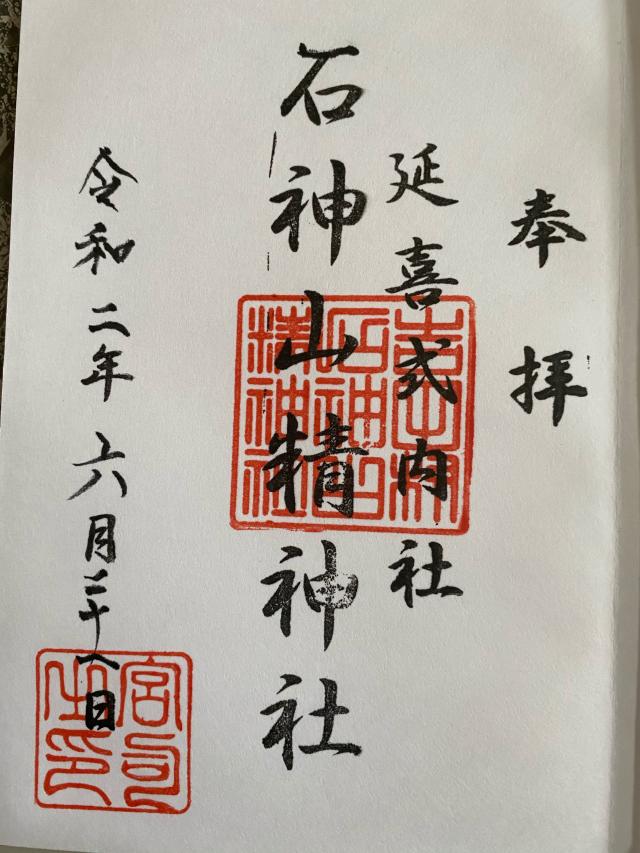 奉拝
延喜式内社
石神山精神社
令和二年六月二十八日
宮司之印